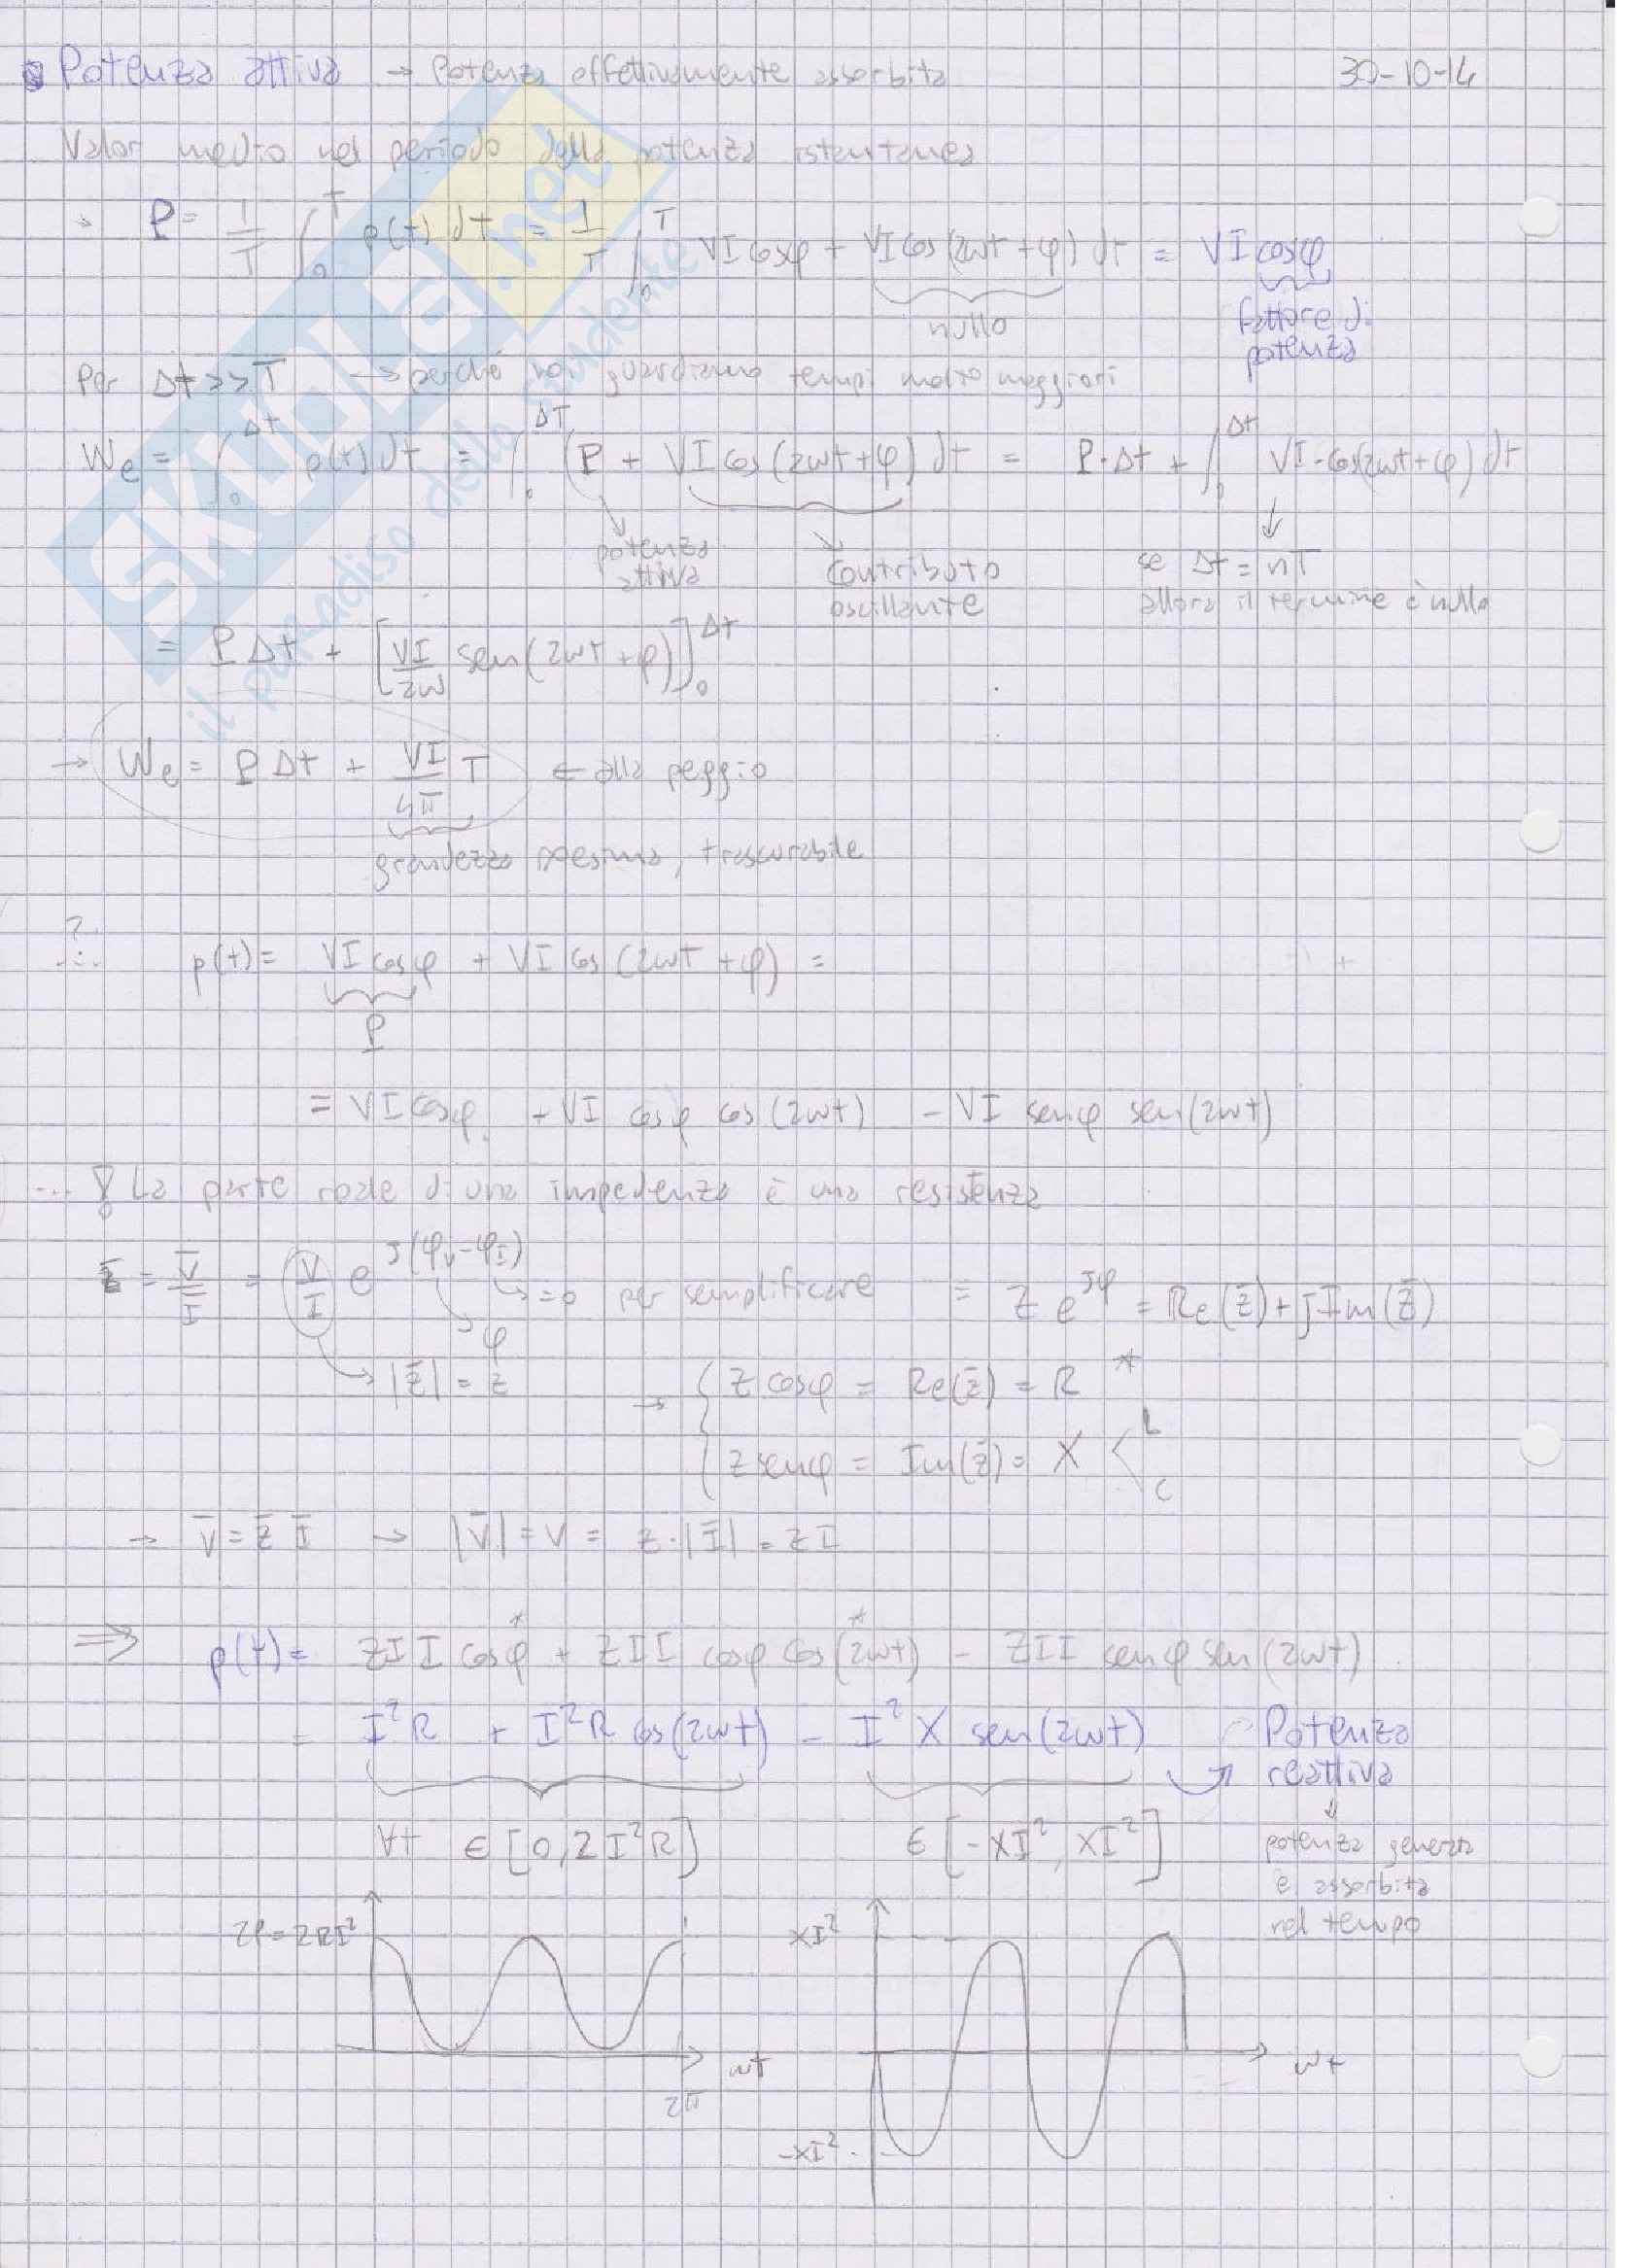 Potenza attiva → Potenza effettivamente assorbita 30-10-14
Valor medio nel periodo della potenza istantanea
→ P = 1/T ∫₀ᵀ p(t) dt = 1/T ∫₀ᵀ VI cosφ + VI cos(2wt + φ) dt = VI cosφ
nullo
fattore di
potenza
Per Δt >> T → perché noi guardiamo tempi molto maggiori
We = ∫₀^Δt p(t) dt = ∫₀^ΔT (P + VI cos(2wt + φ)) dt = P·Δt + ∫₀^Δt VI·cos(2wt + φ) dt
potenza
attiva
contributo
oscillante
se Δt = nT
allora il termine è nullo
= P Δt + [VI/2w sen(2wt + φ)]₀^Δt
→ We = P Δt + VI/4π T ← alla peggio
grandezza trascurabile
?
p(t) = VI cosφ + VI cos(2wt + φ) =
P
= VI cosφ - VI cosφ cos(2wt) - VI senφ sen(2wt)
... La parte reale di una impedenza è una resistenza
Z̄ = V̄/Ī = V/I e^j(φv-φI) → =0 per semplificare = Z e^jφ = Re(Z̄) + j Im(Z̄)
φ
→ |Z̄| = Z
→ { Z cosφ = Re(Z̄) = R *
{ Z senφ = Im(Z̄) = X < L C
→ V̄ = Z̄ Ī → |V̄| = V = Z·|Ī| = ZI
⇒ p(t) = ZII cosφ* + ZII cosφ cos(2wt)* - ZII senφ sen(2wt)
= I²R + I²R cos(2wt) - I²X sen(2wt) Potenza
reattiva
∀t ∈ [0, 2I²R] ∈ [-XI², XI²]
potenza generata
e assorbita
nel tempo
2P = 2RI²
wt
2π
XI²
-XI²
wt
SKUOLA.net
il paradiso dello studente